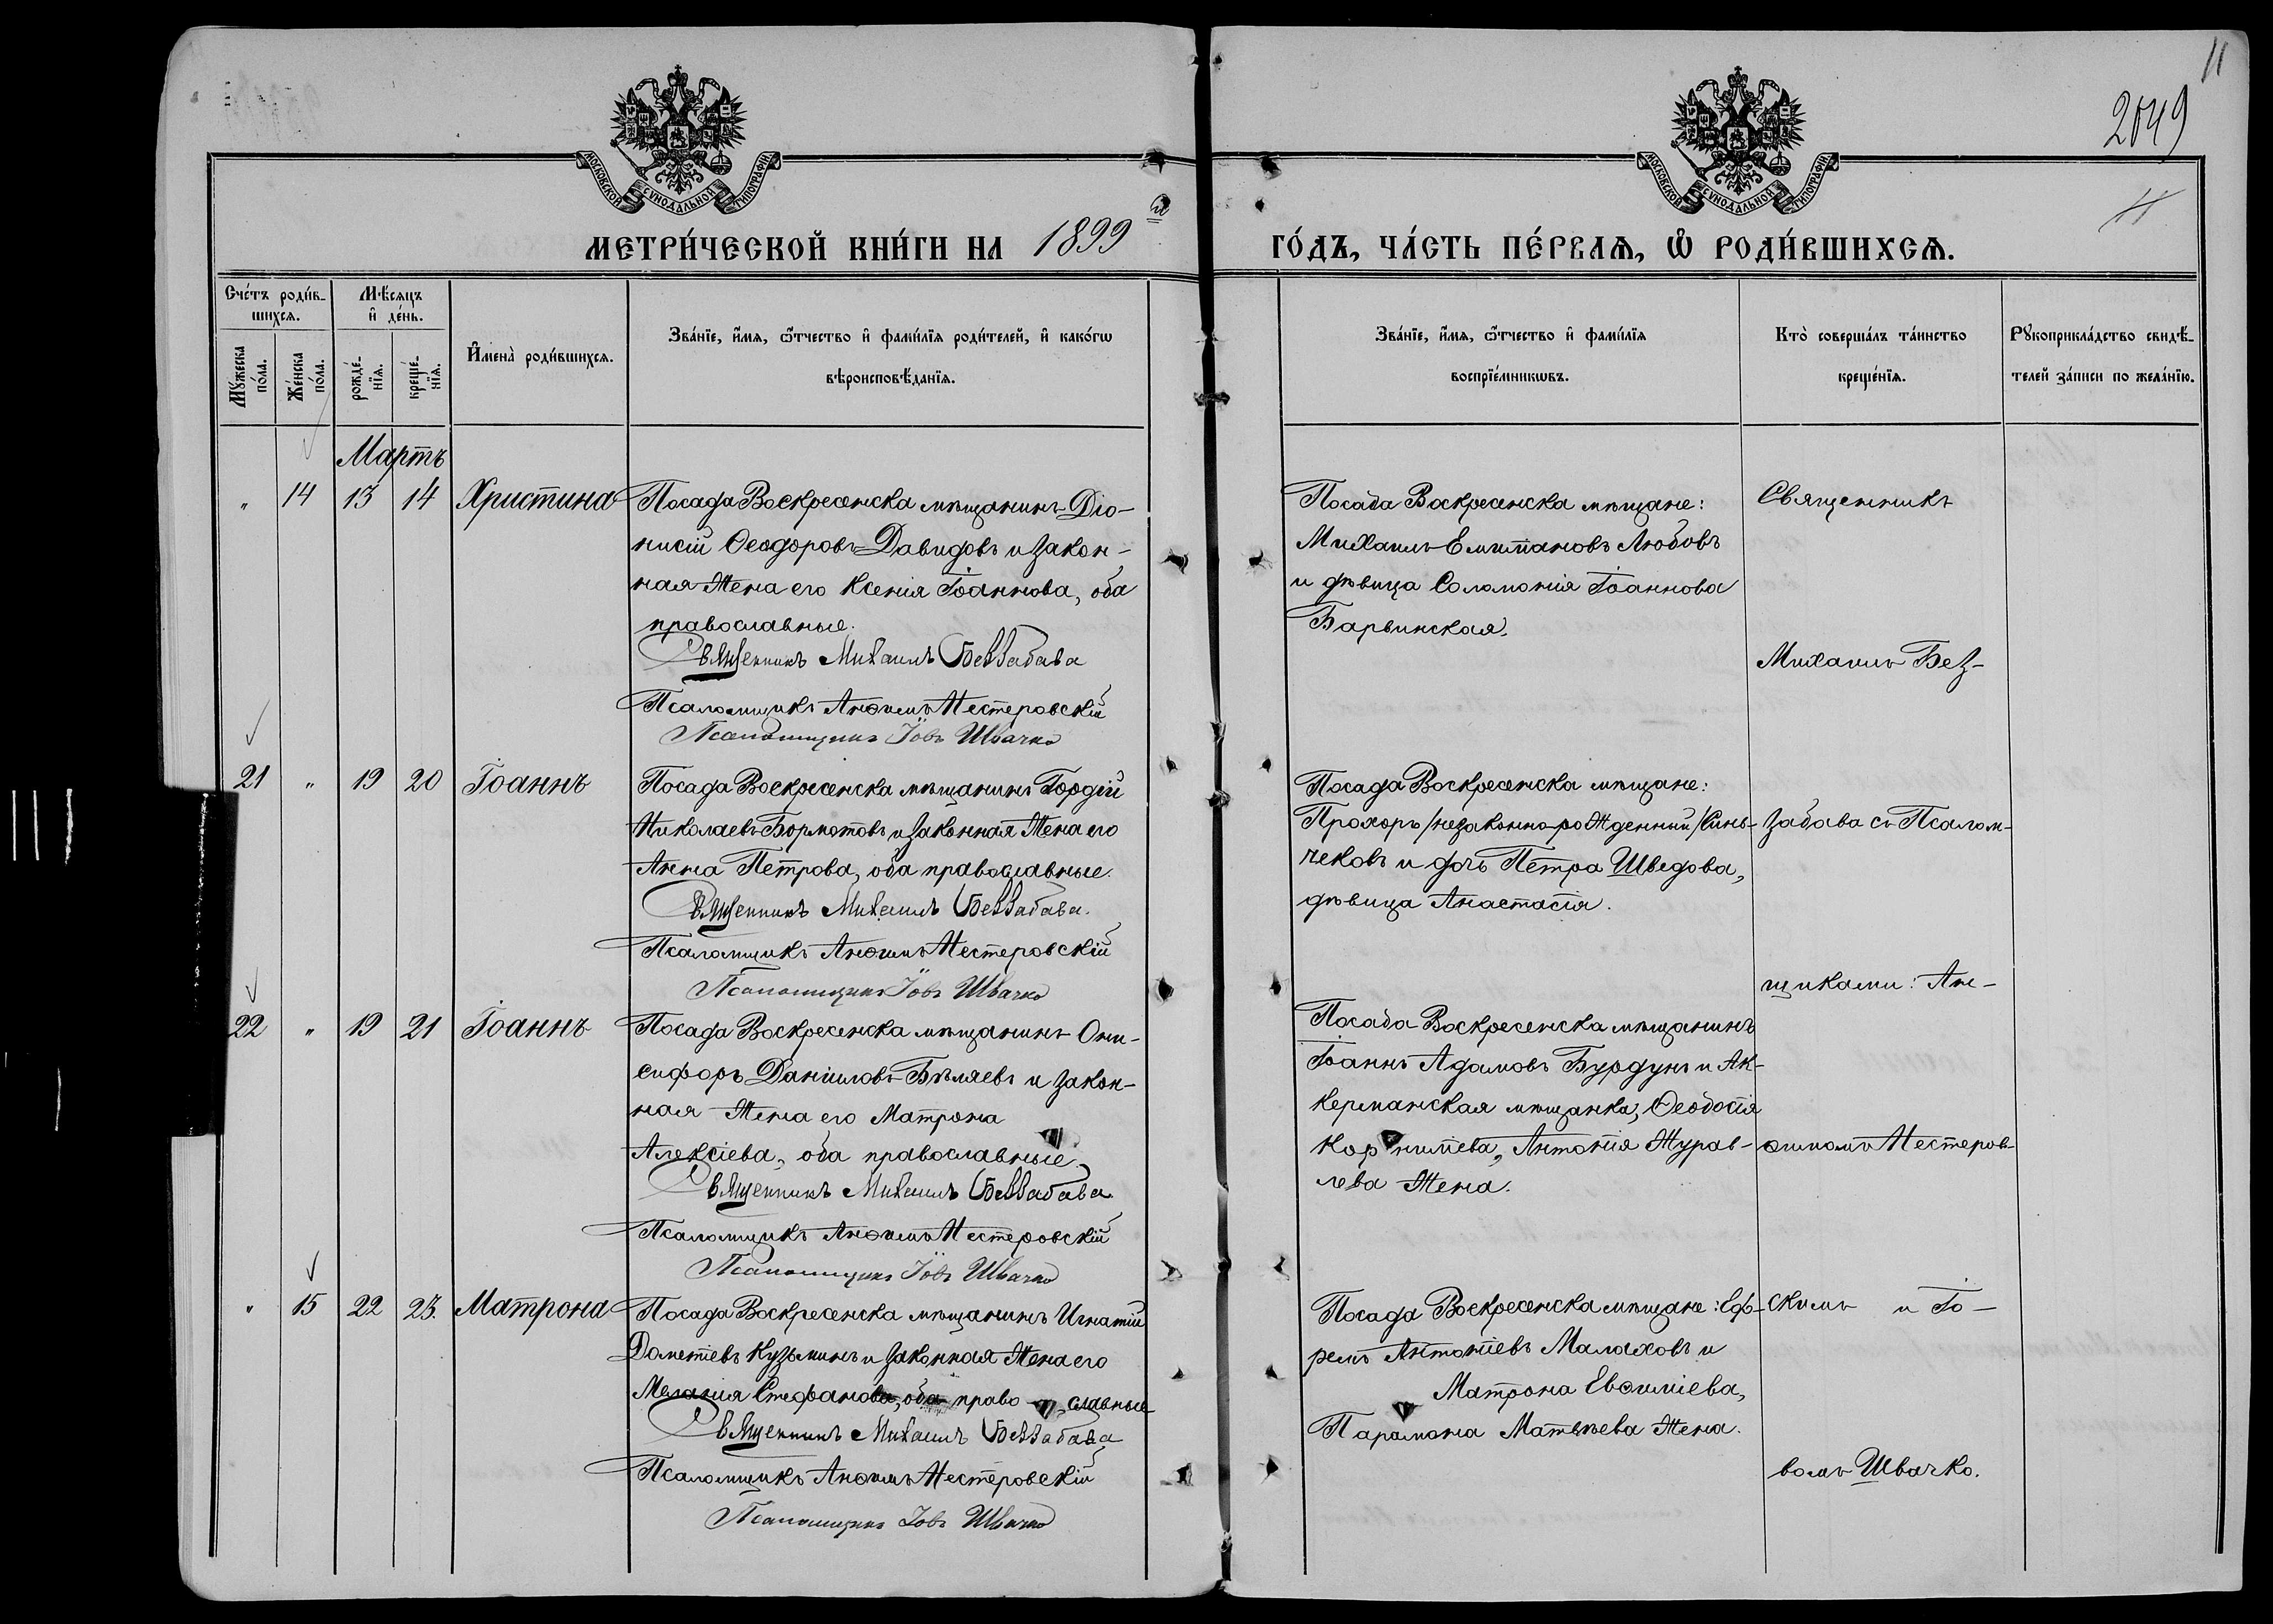 11
2049
11
МОСКОВСКОЙ СѴНОДАЛЬНОЙ ТИПОГРАФІИ
МОСКОВСКОЙ СѴНОДАЛЬНОЙ ТИПОГРАФІИ
МЕТРИ́ЧЕСКОЙ КНИ́ГИ НА 1899 й
ГО́ДЪ, ЧА́СТЬ ПЕ́РВАѦ, Ѽ РОДИ́ВШИХСѦ.
Сче́тъ роди́в-
шихсѧ.
Мѣ́сѧцъ
и҆ де́нь.
Мꙋ́жеска
по́ла.
Же́нска
по́ла.
рожде́-
нїѧ.
креще́-
нїѧ.
И҆мена̀ роди́вшихсѧ.
Зва́нїе, и҆́мѧ, ѻ҆́тчество и҆ фами́лїѧ роди́телей, и҆ како́гѡ
вѣроисповѣ́данїѧ.
Зва́нїе, и҆́мѧ, ѻ҆́тчество и҆ фами́лїѧ
воспрїе́мникѡвъ.
Кто̀ соверша́лъ та́инство
креще́нїѧ.
Рꙋкоприкла́дство свидѣ́-
телей за́писи по жела́нїю.
Мартъ
" 14 13 14 Христина
Посада Воскресенска мѣщанинъ Діо-
нисій Ѳеодоровъ Давидовъ и закон-
ная жена его Ксенія Іоаннова, оба
православные.
Священникъ Михаилъ Беззабава
Псаломщикъ Анѳимъ Нестеровскій
Псаломщикъ Іовъ Швачко
Посада Воскресенска мѣщане:
Михаилъ Емитановъ Любовъ
и дѣвица Соломонія Іоаннова
Барвинская.
Священникъ
Михаилъ Без-
21 " 19 20 Іоаннъ
Посада Воскресенска мѣщанинъ Гордій
Николаевъ Бормотовъ и законная жена его
Анна Петрова, оба православные.
Священникъ Михаилъ Беззабава.
Псаломщикъ Анѳимъ Нестеровскій
Псаломщикъ Іовъ Швачко
Посада Воскресенска мѣщане:
Прохоръ /незаконно-рожденный/ Синь-
чековъ и дочь Петра Шведова,
дѣвица Анастасія.
забава съ Псалом-
щиками: Ан-
22 " 19 21 Іоаннъ
Посада Воскресенска мѣщанинъ Они-
сифоръ Даніиловъ Бѣляевъ и закон-
ная жена его Матрона
Алексіева, оба православные.
Священникъ Михаилъ Беззабава.
Псаломщикъ Анѳимъ Нестеровскій
Псаломщикъ Іовъ Швачко
Посада Воскресенска мѣщанинъ
Іоаннъ Адамовъ Бурдунъ и Ак-
керманская мѣщанка, Ѳеодосія
Корниліева, Антонія Журав-
лева жена.
ѳимомъ Нестеров-
" 15 22 23. Матрона
Посада Воскресенска мѣщанинъ Игнатій
Дометіевъ Кузьминъ и законная жена его
Меланія Стефанова, оба право славные
Священникъ Михаилъ Беззабава
Псаломщикъ Анѳимъ Нестеровскій
Псаломщикъ Іовъ Швачко
Посада Воскресенска мѣщане: Еф-
ремъ Антоніевъ Малаховъ и
Матрона Евѳиміева,
Парамона Матвѣева жена.
скимъ и Іо-
вомъ Швачко.